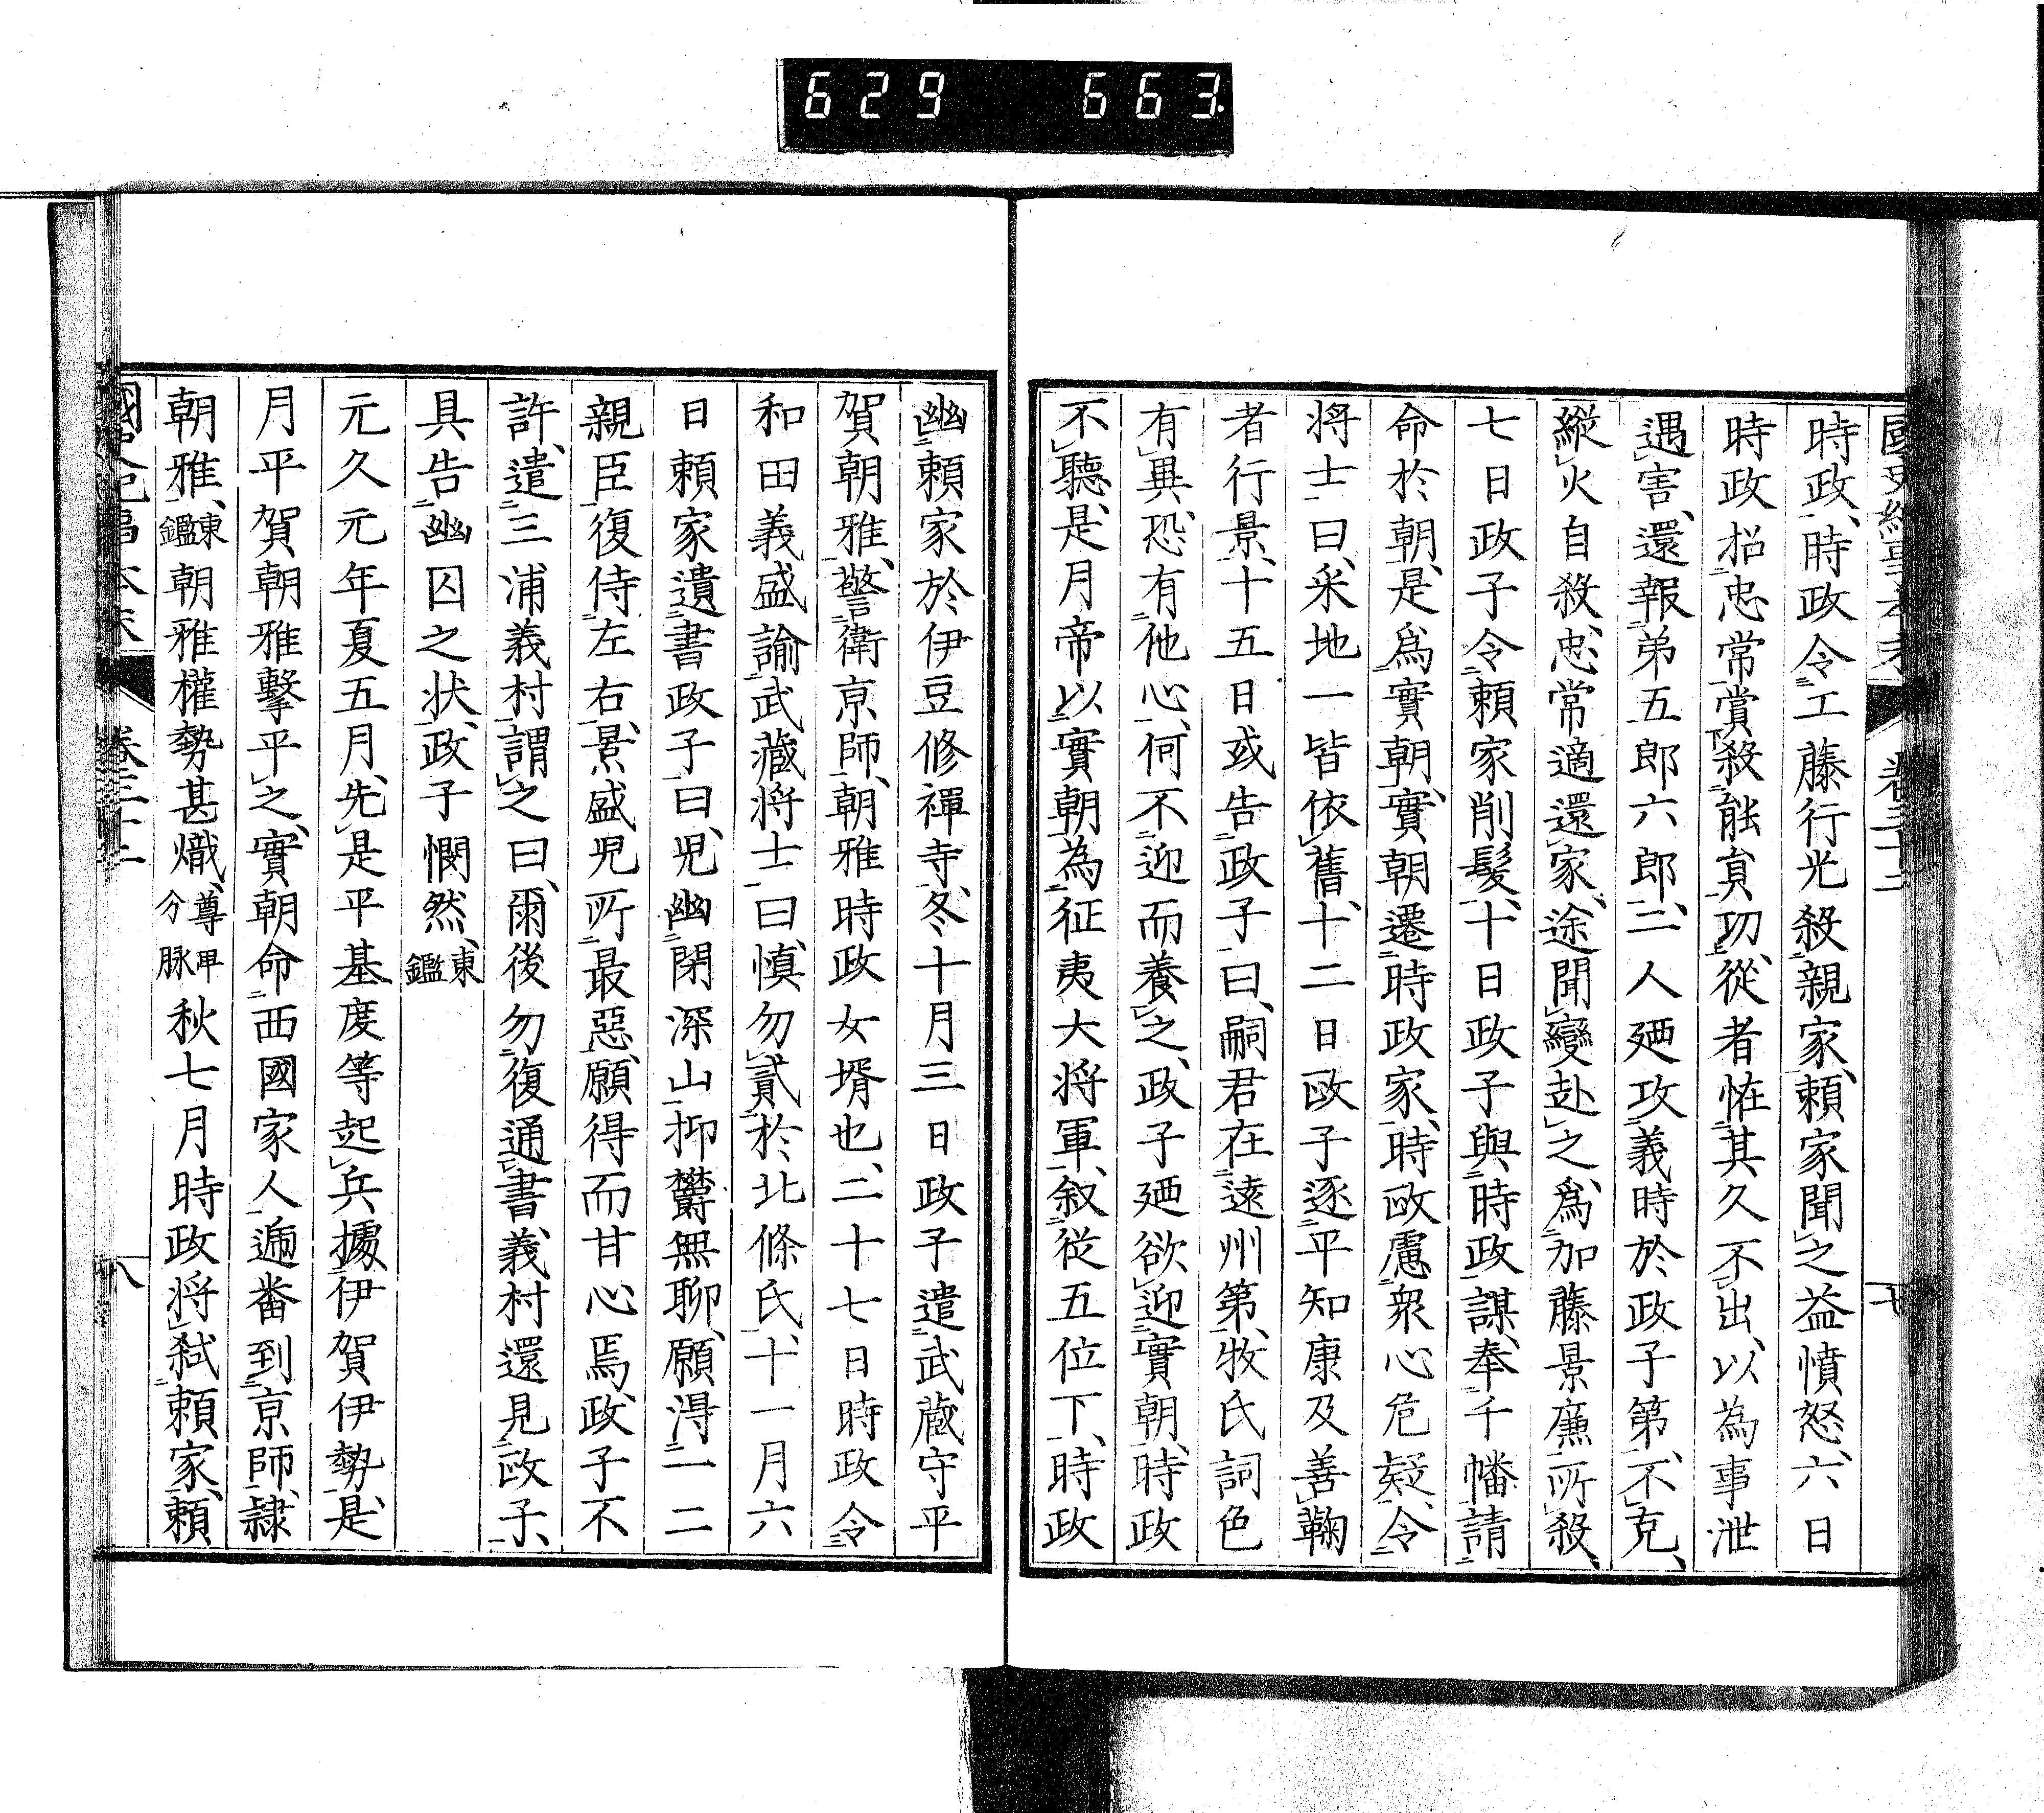 629 663
時政、時政令工藤行光殺親家、頼家聞之益憤怒、六日
時政招忠常賞殺能員功、從者恠其久不出、以為事泄
遇害、還報弟五郎六郎、二人廼攻義時於政子第、不克、
縱火自殺、忠常適還家、途聞變赴之、爲加藤景廉所殺、
七日政子令頼家削髮、十日政子與時政謀、奉千幡請
命於朝、是爲實朝、實朝遷時政家、時政慮衆心危疑、令
将士曰、采地一皆依舊、十二日政子逐平知康及善鞠
者行景、十五日或告政子曰、嗣君在遠州第、牧氏詞色
有異、恐有他心、何不迎而養之、政子廼欲迎實朝、時政
不聽、是月帝以實朝為征夷大将軍、叙従五位下、時政
幽頼家於伊豆修禪寺、冬十月三日政子遣武蔵守平
賀朝雅、警衛京師、朝雅時政女壻也、二十七日時政令
和田義盛諭武藏将士曰、慎勿貳於北條氏、十一月六
日頼家遺書政子曰、児幽閉深山、抑欝無聊、願得一二
親臣復侍左右、景盛児所最惡、願得而甘心焉、政子不
許、遣三浦義村謂之曰、爾後勿復通書、義村還見政子、
具告幽囚之状、政子憫然、東鑑
元久元年夏五月、先是平基度等起兵據伊賀伊勢、是
月平賀朝雅擊平之、實朝命西國家人遍番到京師、隷
朝雅、東鑑朝雅權勢甚熾、尊卑分脉秋七月時政将弑頼家、頼
卷三十二
八